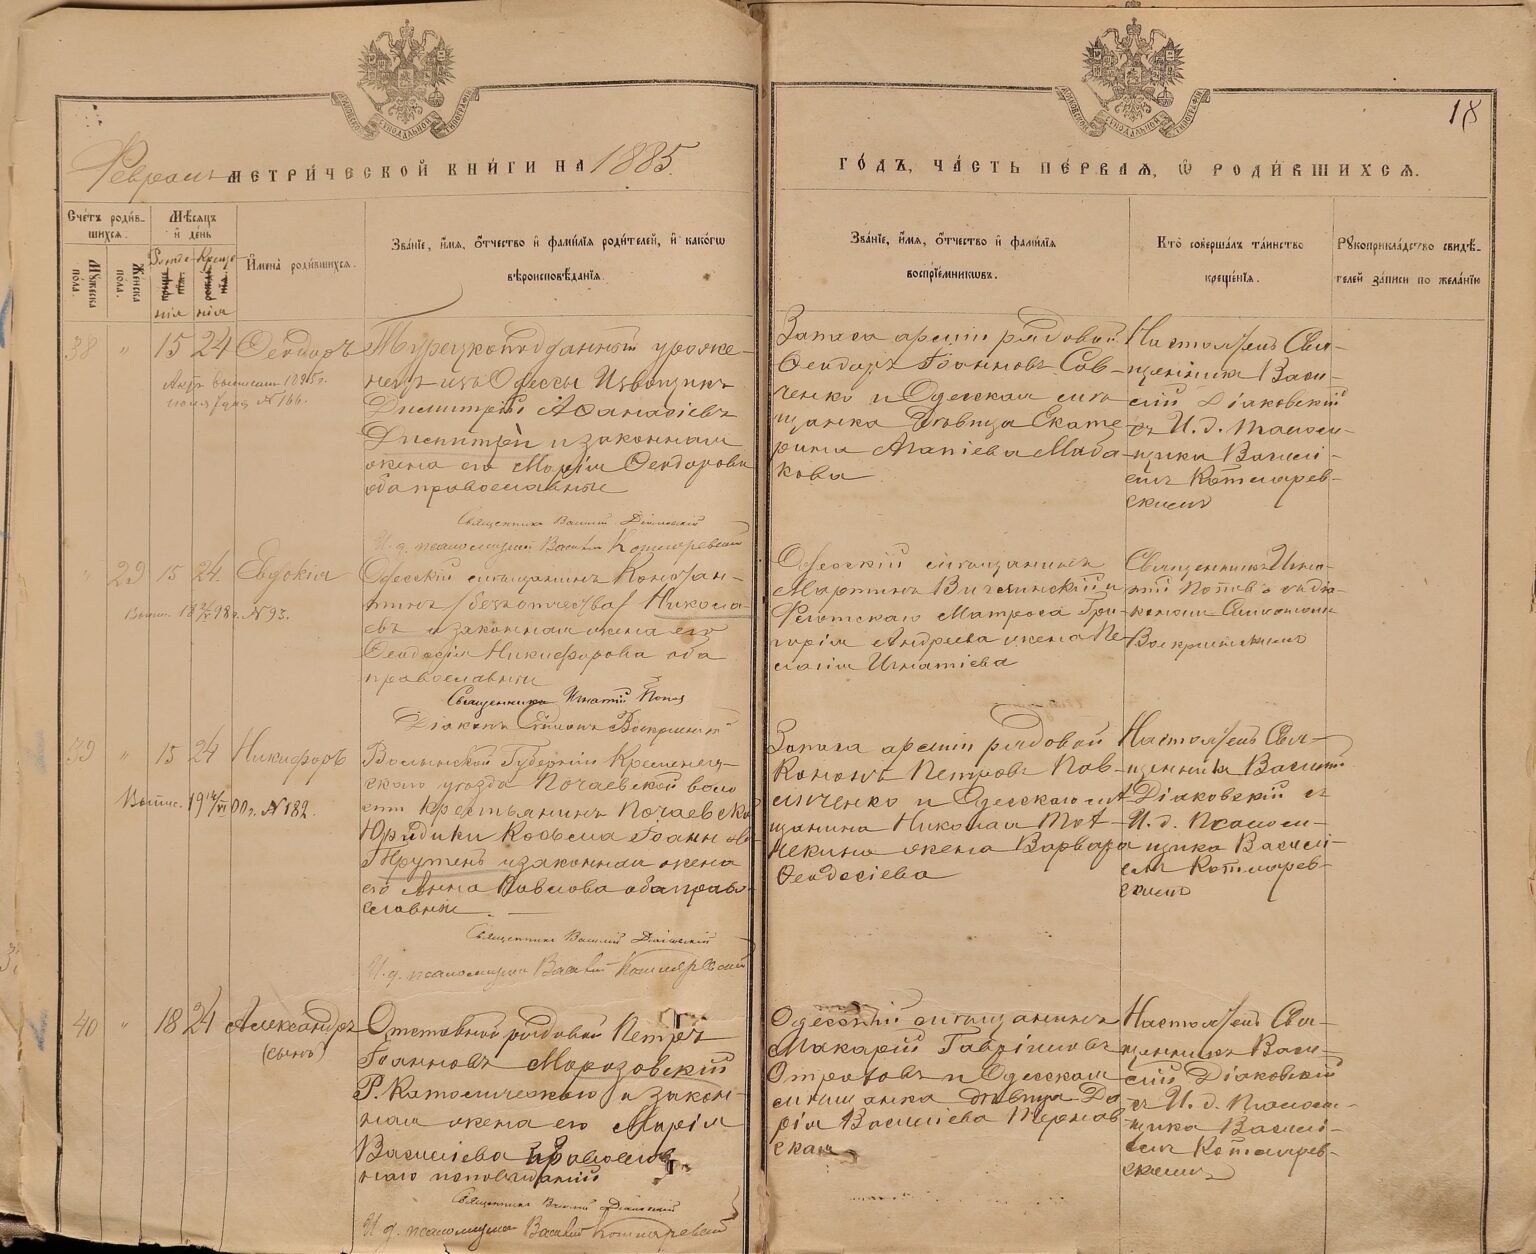 МОСКОВСКОЙ СУНОДАЛЬНОЙ ТИПОГРАФІИ
МОСКОВСКОЙ СУНОДАЛЬНОЙ ТИПОГРАФІИ
18
Февраль МЕТРИ́ЧЕСКОЙ КНИ́ГИ НА 1885.
ГО́ДЪ, ЧА́СТЬ ПЕ́РВАЯ, Ѽ РОДИ́ВШИХСѦ.
Сче́тъ роди́в-
шихсѧ.
Мꙋ́жеска пола.
Же́нска пола.
Мѣ́сѧцъ
и҆ де́нь
Рожде-
нія
Креще-
нія
И҆мена̀ роди́вшихсѧ.
Зва́нїе, и҆́мѧ, ѻ҆́тчество и҆ фамі́лїѧ роди́телей, и҆ како́гѡ
вѣроисповѣ́данїѧ.
Зва́нїе, и҆́мѧ, ѻ҆́тчество и҆ фамі́лїѧ
воспрїе́мникѡвъ.
Кто̀ соверша́лъ та́инство
креще́нїѧ.
Рꙋкоприкла́дство свидѣ́-
телей за́писи по жела́нїю
38 " 15 24 Ѳеодоръ
Актъ выписанъ 1895 г.
№ 166.
Турецкоподданный уроже-
нецъ изъ Одессы Извощикъ
Димитрій Аѳанасіевъ
Димитрей и законная
жена его Марія Ѳеодорова
оба православные
Священникъ Василій Діаковскій
И. д. псаломщика Василій Котляревскій
Запаса арміи рядовой
Ѳеодоръ Іоанновъ Сав-
ченко и Одесская мѣ-
щанка дѣвица Екате-
рина Агапіева Мада-
кова
Настоятель Свя-
щенникъ Васи-
лій Діаковскій
съ И. д. псалом-
щика Василі-
емъ Котлярев-
скимъ
" 29 15 24. Евдокія
Вып. 18 98 г. № 93.
Одесскій мѣщанинъ Констан-
тинъ /безъ отчества/ Никола-
евъ и законная жена его
Ѳеодосія Никифорова оба
православные
Священникъ Игнатій Поповъ
Діаконъ Симеонъ Воскресенскій
Одесскій мѣщанинъ
Мартинъ и
Флотскаго Матроса Гри-
горія Андреева жена Пе-
лагія Игнатіева
Священникъ Игна-
тій Поповъ съ діа-
кономъ Симеономъ
Воскресенскимъ
39 " 15 24 Никифоръ
Выпис. 19 00 г. № 182.
Волынской Губерніи Кременец-
скаго уѣзда Почаевской воло
сти Крестьянинъ Почаевской
Юридики Косьма Іоанновъ
Трутень и законная жена
его Анна Павлова оба право-
славные.
Священникъ Василій Діаковскій
И. д. псаломщика Василій Котляревскій
Запаса арміи рядовой
Кононъ Петровъ Пав-
личенко и Одесскаго мѣ-
щанина Николая Тот-
чекина жена Варвара
Ѳеодосіева
Настоятель Свя-
щенникъ Василій
Діаковскій съ
И. д. Псалом-
щика Василі-
емъ Котлярев-
скимъ
40 " 18 24 Александръ
(сынъ)
Отставной рядовой Петръ
Іоанновъ Морозовскій
Р. Католическаго и закон-
ная жена его Марія
Василіева православ
наго исповѣданій
Священникъ Василій Діаковскій
И. д. псаломщика Василій Котляревскій
Одесскій мѣщанинъ
Макарій Гавріиловъ
Отратовъ и Одесская
мѣщанка дѣвица Да-
рія Василіева Чернов-
ская
Настоятель Свя-
щенникъ Васи-
лій Діаковскій
съ И. д. Псалом-
щика Василі-
емъ Котлярев-
скимъ